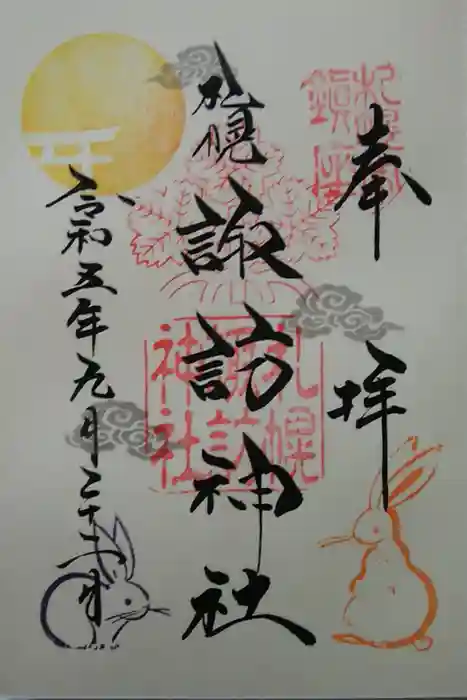 奉拝
札幌鎮座
札幌 諏訪神社
札幌諏訪神社
令和五年九月二十九日